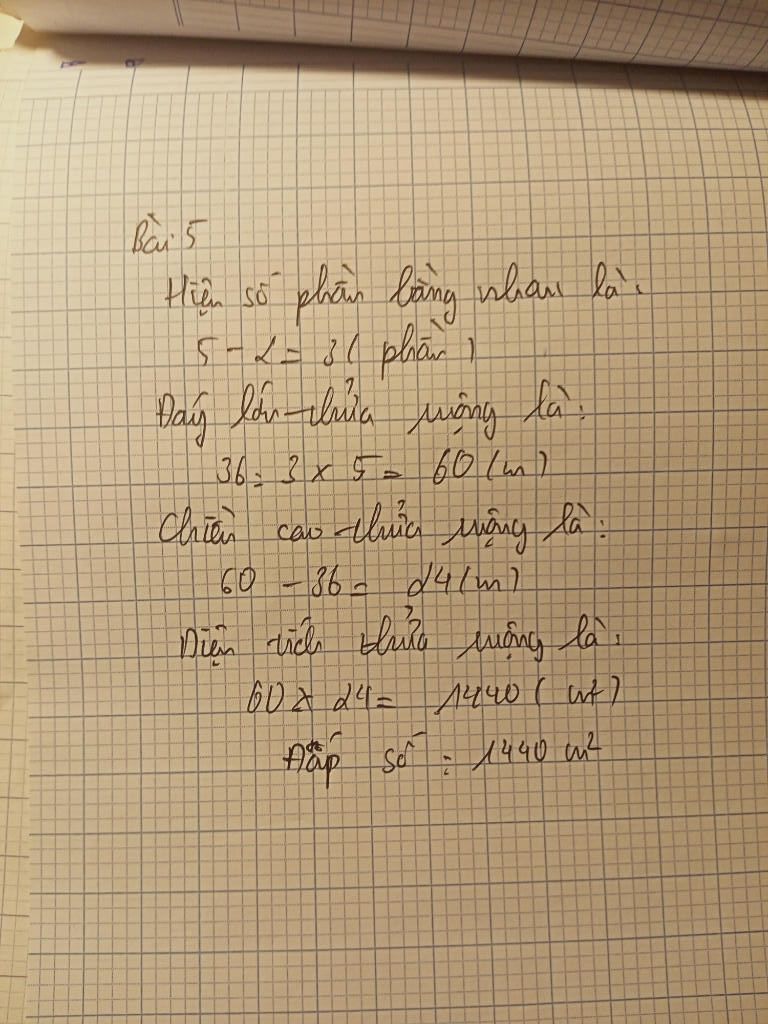 Bài 5
Hiệu số phần bằng nhau là:
5 - 2 = 3 ( phần )
Đáy lớn thửa ruộng là:
36 : 3 x 5 = 60 (m)
Chiều cao thửa ruộng là:
60 - 36 = 24 (m)
Diện tích thửa ruộng là:
60 x 24 = 1440 ( m2 )
Đáp số : 1440 m²